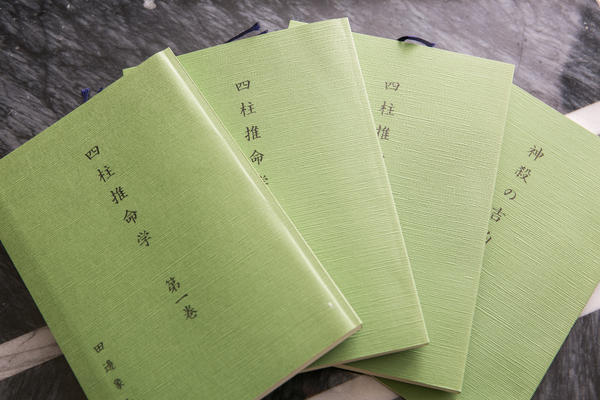 四柱推命学 第一巻
田邊象
四柱推命学
四柱推
神殺の吉